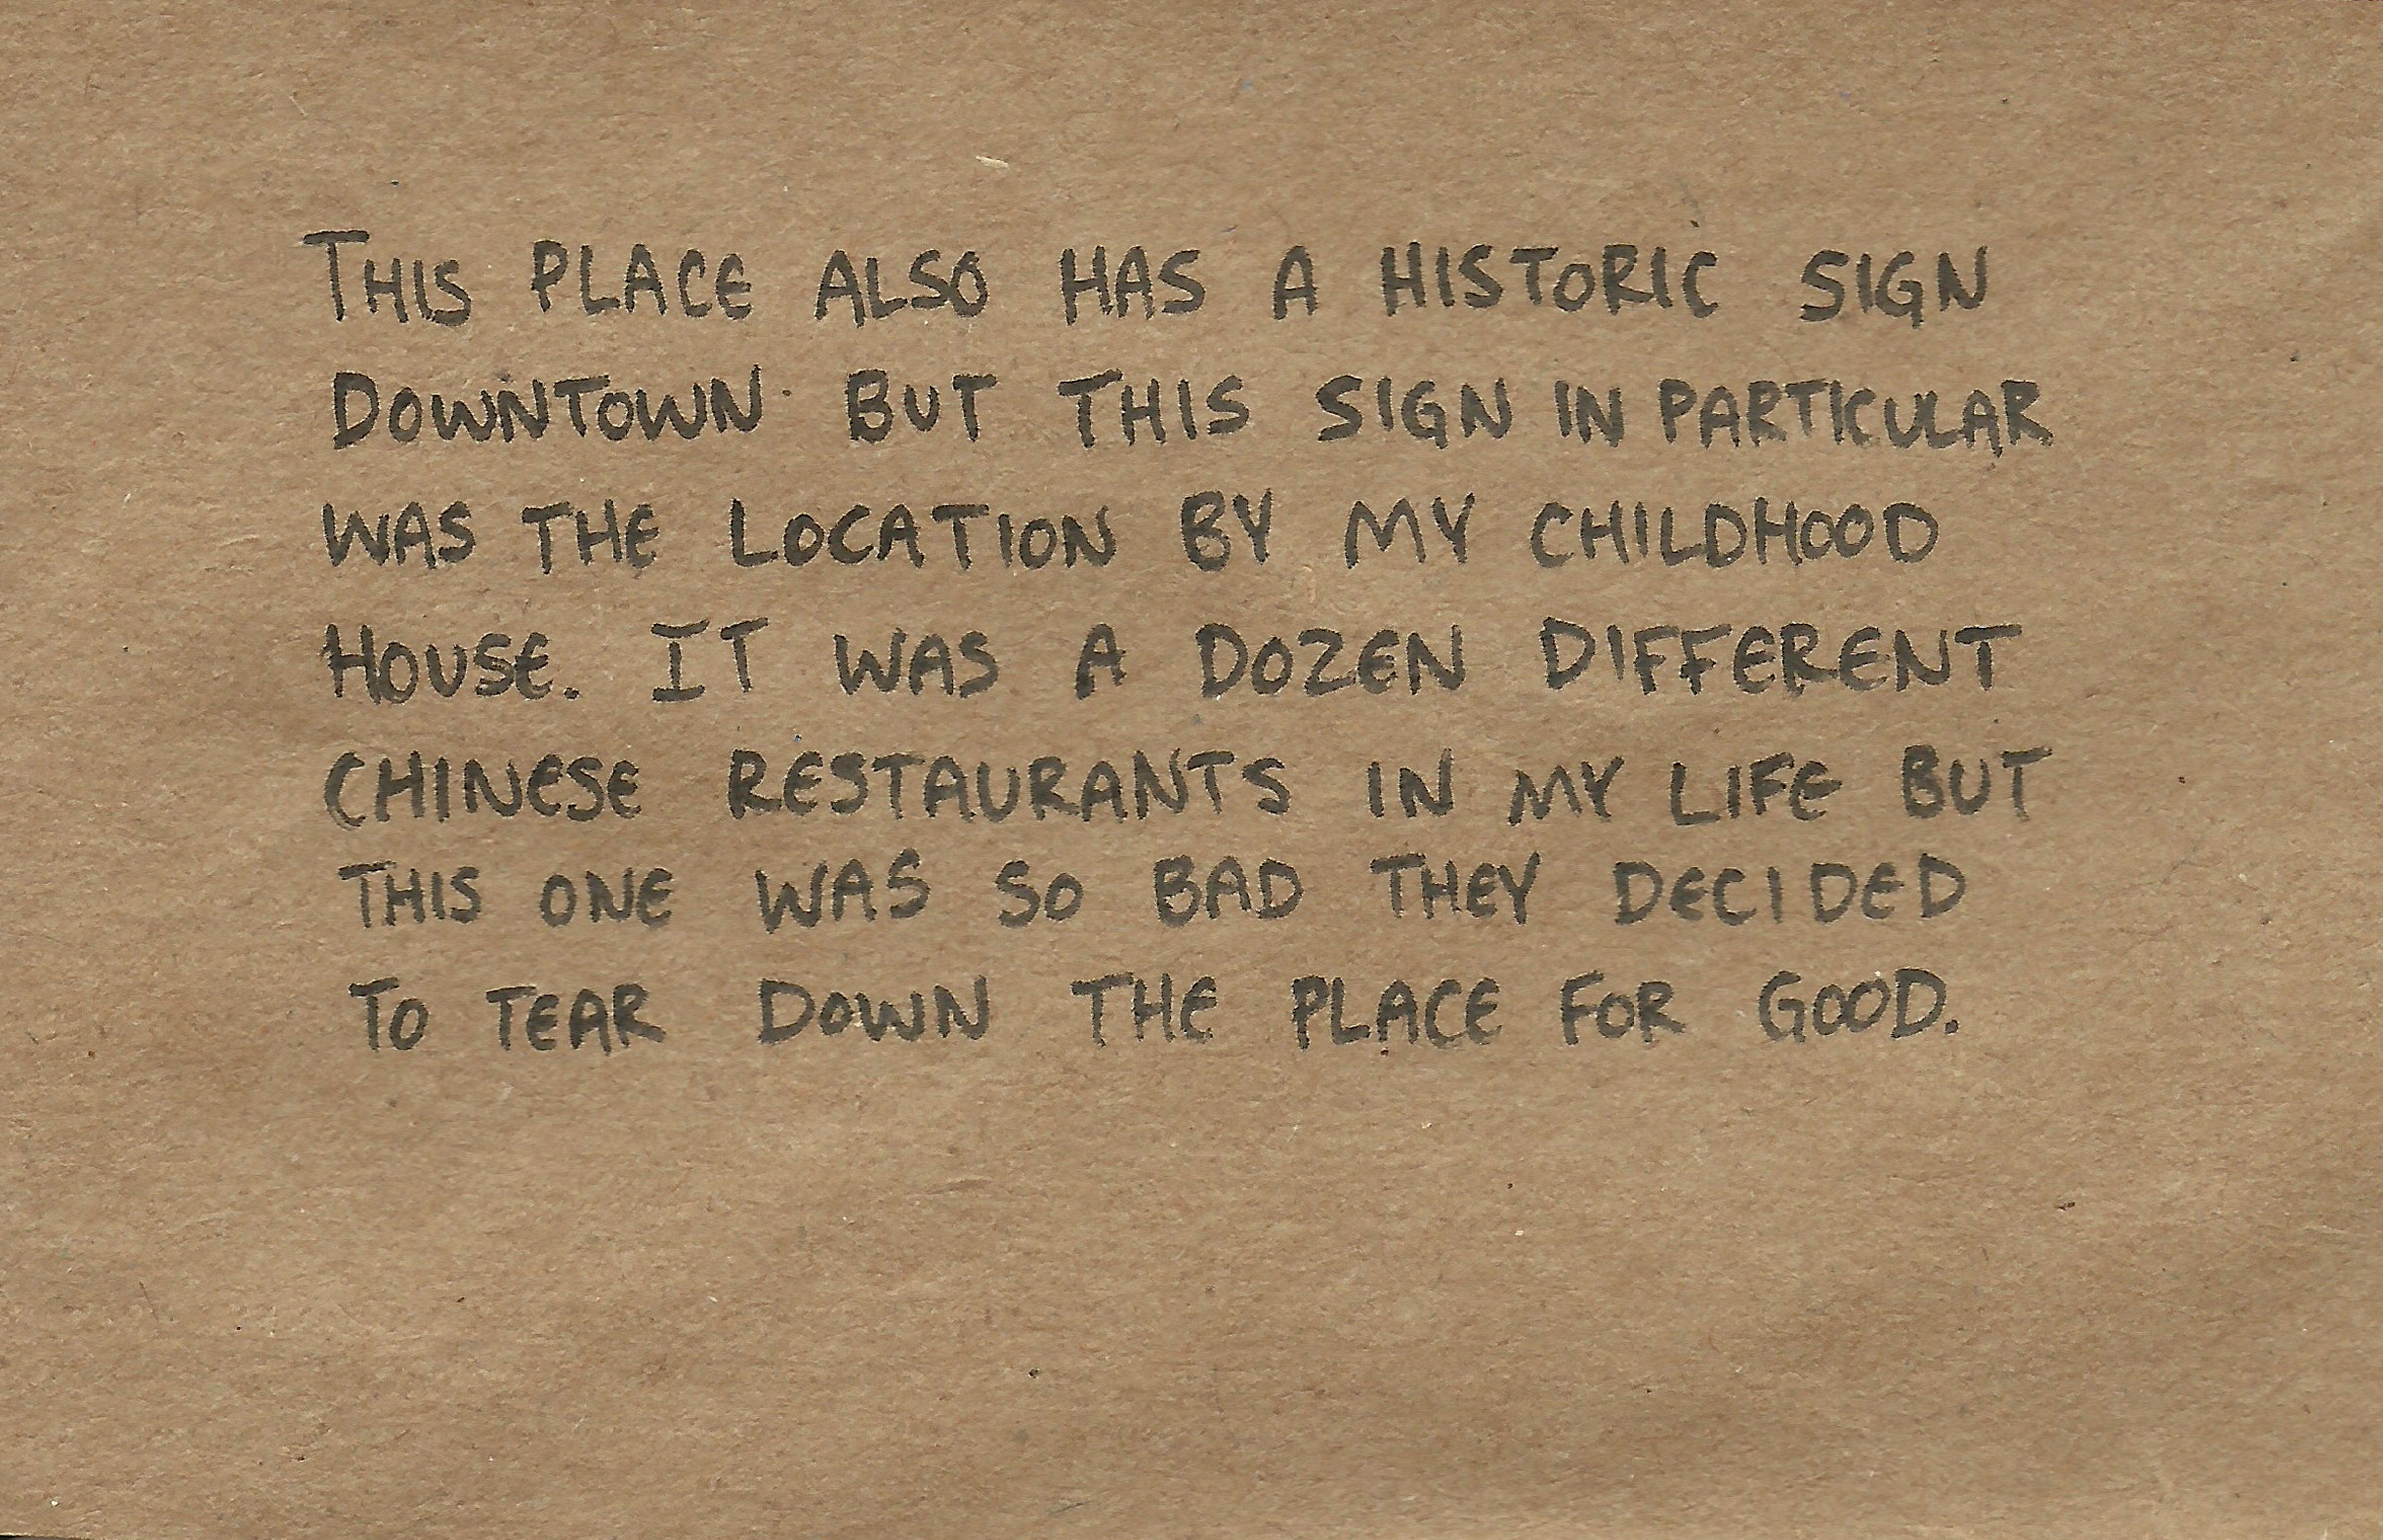 THIS PLACE ALSO HAS A HISTORIC SIGN
DOWNTOWN BUT THIS SIGN IN PARTICULAR
WAS THE LOCATION BY MY CHILDHOOD
HOUSE. IT WAS A DOZEN DIFFERENT
CHINESE RESTAURANTS IN MY LIFE BUT
THIS ONE WAS SO BAD THEY DECIDED
TO TEAR DOWN THE PLACE FOR GOOD.